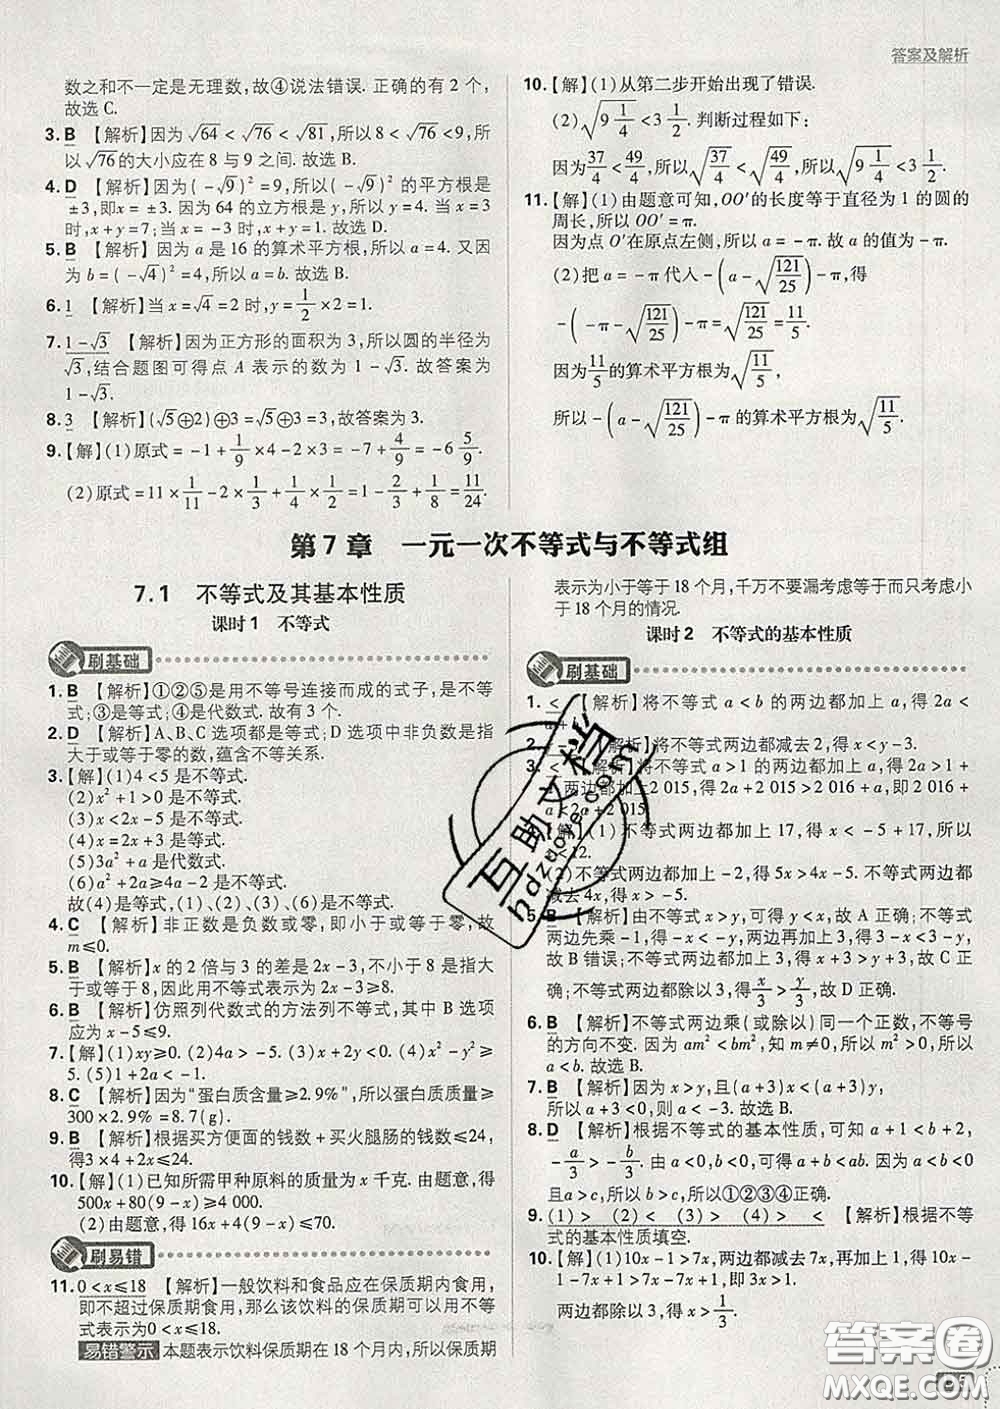 答案及解析
数之和不一定是无理数,故④说法错误. 正确的有 2 个,
故选 C.
3. B 【解析】因为 √64 < √76 < √81,所以 8 < √76 < 9,所
以√76的大小应在 8 与 9 之间. 故选 B.
4. D 【解析】因为(-√9)² = 9,所以(-√9)² 的平方根是
±3,即x = ±3. 因为 64 的立方根是 y,所以 y = 4. 当 x = 3
时,x + y = 7;当 x = -3 时,x + y = 1. 故选 D.
5. B 【解析】因为 a 是 16 的算术平方根,所以 a = 4. 又因
为 b = (-√4)² = 4,所以 a = b. 故选 B.
6. 1 【解析】当 x = √4 = 2 时,y = 1/2 × 2 = 1.
7. 1 - √3 【解析】因为正方形的面积为 3,所以圆的半径为
√3,结合题图可得点 A 表示的数为 1 - √3. 故答案为
1 - √3.
8. 3 【解析】(√5⊕2)⊕3 = √5⊕3 = 3,故答案为 3.
9. 【解】(1)原式 = -1 + 1/9 × 4 - 3 × 2 = -7 + 4/9 = -6 5/9.
(2)原式 = 11 × 1/11 - 2 × 1/3 + 1/4 × 1/2 = 1 - 2/3 + 1/8 = 11/24.
10. 【解】(1)从第二步开始出现了错误.
(2)√(9 1/4) < 3 1/2. 判断过程如下:
因为37/4 < 49/4,所以√(37/4) < √(49/4),所以√(9 1/4) < 3 1/2.
11. 【解】(1)由题意可知,OO′的长度等于直径为 1 的圆的
周长,所以 OO′ = π.
因为点 O′在原点左侧,所以 a = -π. 故 a 的值为 -π.
(2)把 a = -π 代入 -(a - √(121/25)) - π,得
-(-π - √(121/25)) - π = √(121/25) = 11/5.
因为11/5的算术平方根为√(11/5),
所以 -(a - √(121/25)) - π 的算术平方根为√(11/5).
第 7 章 一元一次不等式与不等式组
7.1 不等式及其基本性质
课时 1 不等式
刷基础
1. B 【解析】①②⑤是用不等号连接而成的式子,是不等
式;③是等式;④是代数式. 故有 3 个.
2. D 【解析】A、B、C 选项都是等式;D 选项中非负数是指
大于或等于零的数,蕴含不等关系.
3. 【解】(1)4 < 5 是不等式.
(2)x² + 1 > 0 是不等式.
(3)x < 2x - 5 是不等式.
(4)x = 2x + 3 是等式.
(5)3a² + a 是代数式.
(6)a² + 2a ≥ 4a - 2 是不等式.
故(4)是等式,(1)、(2)、(3)、(6)是不等式.
4. C 【解析】非正数是负数或零,即小于或等于零,故
m ≤ 0.
5. B 【解析】x 的 2 倍与 3 的差是 2x - 3,不小于 8 是指大
于或等于 8,因此用不等式表示为 2x - 3 ≥ 8.
6. B 【解析】仿照列代数式的方法列不等式,其中 B 选项
应为 x - 5 ≤ 9.
7. 【解】(1)xy ≥ 0. (2)4a > -5. (3)x + 2y < 0. (4)x² - y² ≥
5. (5)1 + 2a < -1.
8. C 【解析】因为“蛋白质含量 ≥ 2.9%”,所以蛋白质质量 ≥
300 × 2.9% = 8.7(g).
9. B 【解析】根据买方便面的钱数 + 买火腿肠的钱数 ≤ 24,
得3 × 4 + 2x ≤ 24.
10. 【解】(1)已知所需甲种原料的质量为 x 千克. 由题意,得
500x + 80(9 - x) ≥ 4 000.
(2)由题意,得 16x + 4(9 - x) ≤ 70.
刷易错
11. 0 < x ≤ 18 【解析】一般饮料和食品应在保质期内食用,
即不超过保质期食用,那么该饮料的保质期可以用不等
式表示为0 < x ≤ 18.
易错警示 本题表示饮料保质期在 18 个月内,所以保质期
表示为小于等于 18 个月,千万不要漏考虑等于而只考虑小
于 18 个月的情况.
课时 2 不等式的基本性质
刷基础
1. < 【解析】将不等式 a < b 的两边都加上 a,得 2a <
a + b.
2. 【解析】将不等式两边都减去 2,得 x < y - 3.
3. < 【解析】将不等式 a > 1 的两边都加上 a,得 2a > 1 +
两边都加上2 015,得 2a + 2 015 > 1 + a + 2 015,即 2 016 +
a < 2a + 2 015.
【解】(1)不等式两边都加上 17,得 x < -5 + 17,所以
x < 12.
(2)不等式两边都减去 4x,得 5x - 4x > 4x - 5 - 4x,两边都
减去 4x,得 x > -5.
5. B 【解析】由不等式 x > y,可得 x - y > 0,故 A 正确;不等式
两边先乘 -1,得 -x < -y,两边再加上 3,得 3 - x < 3 - y,
故 B 错误;不等式两边都加上 3,得 x + 3 > y + 3,故 C 正
确;不等式两边都除以 3,得x/3 > y/3,故 D 正确.
6. B 【解析】不等式两边乘(或除以)同一个正数,不等号
的方向不变. 因为 am² < bm²,知 m ≠ 0,所以 m² > 0,所以
a < b. 故选 B.
7. B 【解析】因为 x > y,且(a + 3)x < (a + 3)y,
所以 a + 3 < 0,即 a < -3. 故选 B.
8. D 【解析】根据不等式的基本性质,可知 a + 1 < b + 2,
-a/3 > -b/3. 因为 a < 0,b < 0,得 a + b < ab. 因为 a > b,
a > c,所以 b > c,所以①②③④正确.
9. (1) > (2) < (3) > (4) > < 【解析】根据不等
式的基本性质填空.
10. 【解】(1)10x - 1 > 7x,两边都减去 7x,再加上 1,得 10x -
1 - 7x + 1 > 7x - 7x + 1,即 3x > 1,
两边都除以 3,得 x > 1/3.
互助文档
hdzuoye.com
答案圈
MXQE.COM